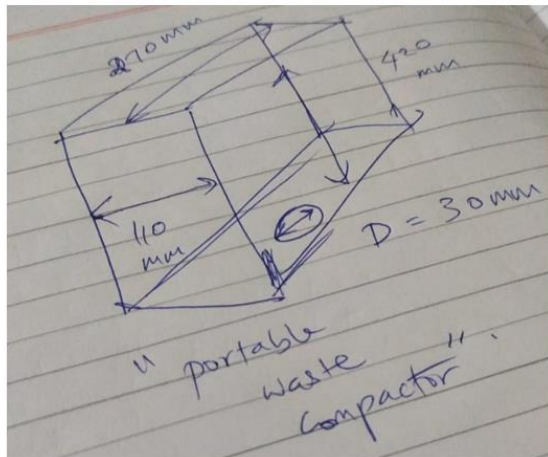 270 mm
420
mm
110
mm
D = 30 mm
" portable
waste
compactor ".